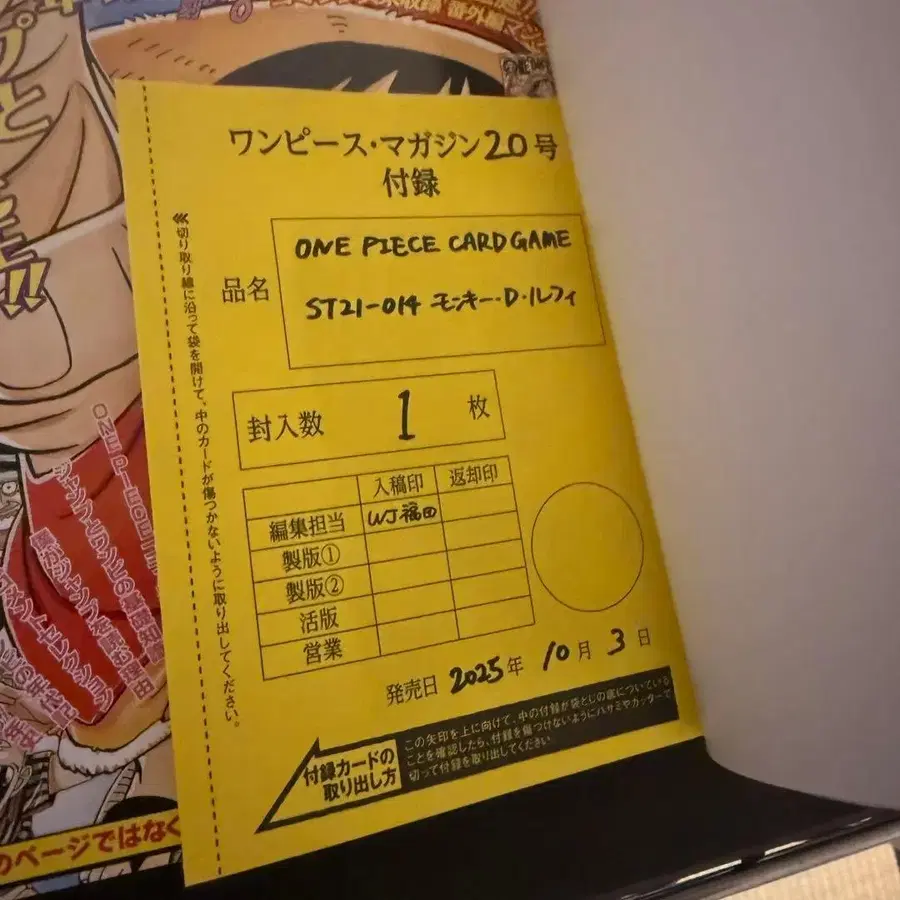 ワンピース・マガジン20号
付録
品名
ONE PIECE CARD GAME
ST21-014 モンキー・D・ルフィ
封入数 1 枚
入稿印 返却印
編集担当 WJ福田
製版①
製版②
活版
営業
発売日 2025年 10月 3日
付録カードの
取り出し方
この矢印を上に向けて、中の付録が袋とじの底についている
ことを確認したら、付録を傷つけないようにハサミやカッターで
切って付録を取り出してください。
≪切り取り線に沿って袋を開けて、中のカードが傷つかないように取り出してください。
のページではなく